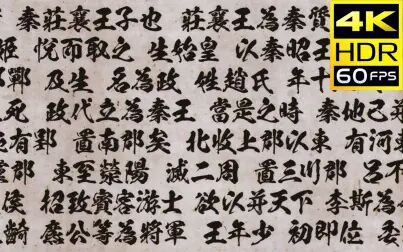 4K
HDR
60FPS
秦莊襄王子也 莊襄王為秦質
姬 悅而取之 生始皇 以秦昭王
鄲 及生 名為政 姓趙氏 年十
死 政代立為秦王 當是之時 秦地已
有郢 置南郡矣 北收上郡以東 有河東
郡 東至滎陽 滅二周 置三川郡 呂不
侯 招致賓客游士 欲以并天下 李斯為
齮 麃公等為將軍 王年少 初即位 委